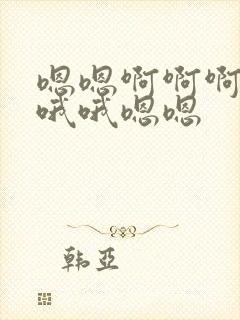 嗯嗯啊啊啊
哦哦嗯嗯
韩亚